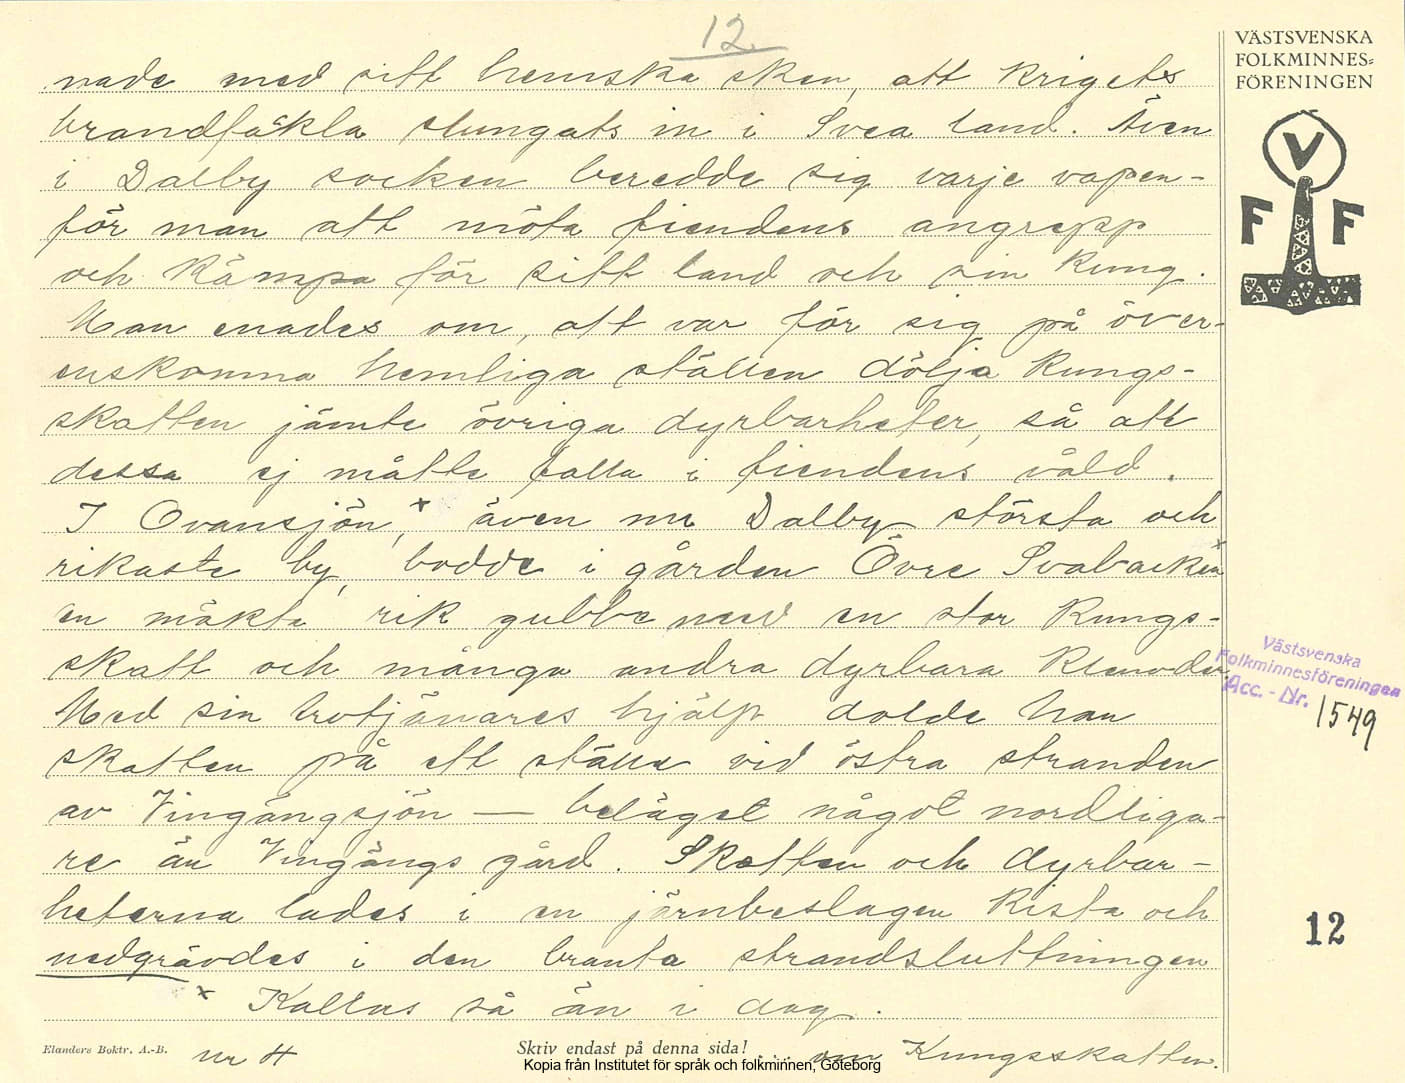 12.
VÄSTSVENSKA
FOLKMINNES=
FÖRENINGEN
V
F F
nade med sitt hemska sken, att krigets
brandfackla slungats in i Svea land. Även
i Dalby socken beredde sig varje vapen-
för man att möta fiendens angrepp
och kämpa för sitt land och sin kung.
Man enades om, att var för sig på över-
enskomna hemliga ställen dölja kungs-
skatten jämte övriga dyrbarheter, så att
dessa ej måtte falla i fiendens våld.
I Ovansjön,x även nu Dalby största och
rikaste by, bodde i gården Övre Svabackenx
en mäkta rik gubbe med en stor kungs-
skatt och många andra dyrbara klenoder.
Med sin trotjänares hjälp dolde han
skatten på ett ställe vid östra stranden
av Vingängsjön — beläget något nordliga-
re än Vingängs gård. Skatten och dyrbar-
heterna lades i en järnbeslagen kista och
nedgrävdes i den branta strandsluttningen
x Kallas så än i dag.
Västsvenska
Folkminnesföreningen
Acc.-Nr. 1549
12
Elanders Boktr. A.-B.
nr 4
Skriv endast på denna sida!
... om Kungsskatten.
Kopia från Institutet för språk och folkminnen, Göteborg